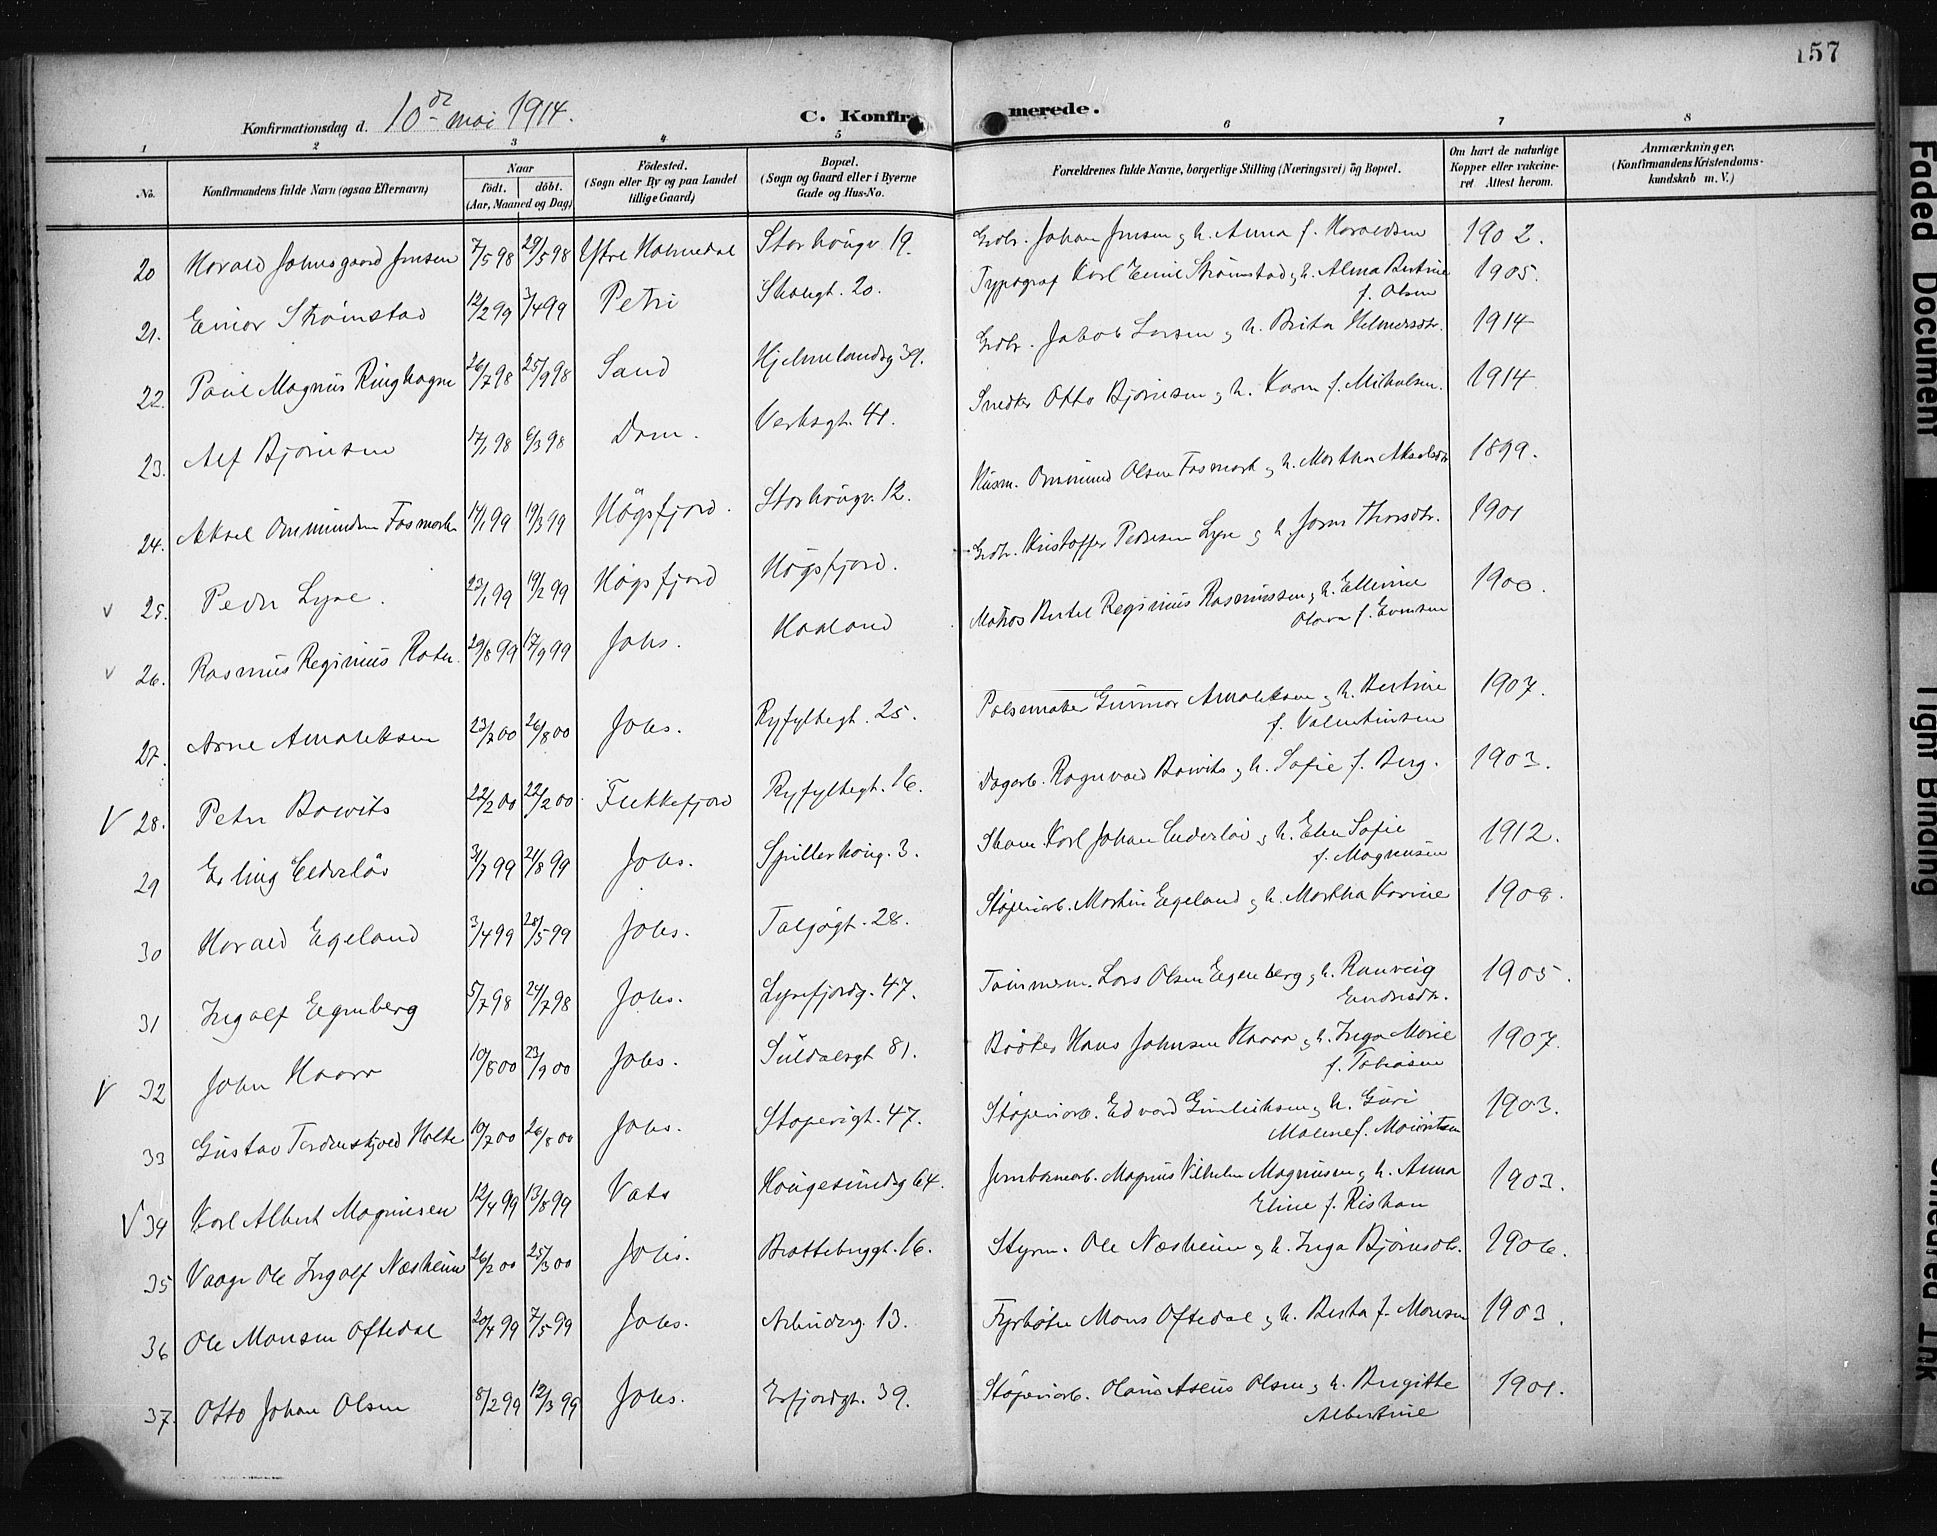 157
Konfirmationsdag d. 10de mai 1914.
C. Konfirmerede.
1 2 3 4 5 6 7 8
No. Konfirmandens fulde Navn (ogsaa Efternavn) Naar födt. döbt. (Aar, Maaned og Dag) Födested. (Sogn eller By og paa Landet tillige Gaard) Bopæl. (Sogn og Gaard eller i Byerne Gade og Hus-No. Forældrenes fulde Navne, borgerlige Stilling (Næringsvei) og Bopæl. Om havt de naturlige Kopper eller vakcineret Attest herom. Anmærkninger. (Konfirmandens Kristendomskundskab m. V.)
20 Harald Johnsgaard Jensen 7/5 98 29/5 98 Ytre Holmedal Storhaugv. 19. Grdbr. Johan Jensen og h. Anna f. Haraldsen 1902.
21. Einar Strømstad 12/2 99 3/4 99 Petri Skolegt. 20. Typograf Karl Emil Strømstad og h. Alma Bertine f. Olsen 1905.
22. Paul Magnus Ringhagne 26/7 98 25/9 98 Sand Hjelmelandsg 39. Grdbr. Jakob Larsen og h. Brita Helmersdtr. 1914
23. Alf Bjørnsen 17/1 98 6/3 98 Dom. Verksgt. 41. Snedker Otto Bjørnsen og h. Karen f. Mikalsen. 1914
24. Aksel Ommundsen Fosmark 14/1 99 19/3 99 Høgsfjord. Storhaugv. 12. Husm. Ommund Olsen Fosmark og h. Martha Akselsdtr 1899.
v 25. Peder Lyse. 23/1 99 19/2 99 Høgsfjord Høgsfjord. Grdbr. Kristoffer Pedersen Lyse og h. Jorun Thorsdtr. 1901
v 26. Rasmus Reginius 29/8 99 17/9 99 Johs. Haaland Matros Bertel Reginius Rasmussen og h. Ellevine Olava f. Evensen 1900.
27. Arne Arnoldsen 23/7 00 26/8 00 Johs. Ryfylkegt. 25. Pølsemaker Gunnar Arnoldsen og h. Bertine f. Valentinsen 1907.
V 28. Peter Bowitz 22/2 00 22/2 00 Flekkefjord Ryfylkegt. 16. Dagarb. Ragnvald Bowitz og h. Sofie f. Berg. 1903.
29 Erling 31/7 99 21/8 99 Johs. Spillerhaug. 3. Skom. Karl Johan og h. Elen Sofie f. Magnusen 1912.
30 Harald Egeland 3/4 99 28/5 99 Johs. Talgøgt. 28. Støperiarb. Martin Egeland og h. Martha Karine 1908.
31 Ingolf Egenberg 5/7 98 24/7 98 Johs. Lysefjordg. 47. Tømmerm. Lars Olsen Egenberg og h. Ranveig Endresdtr. 1905.
V 32 John Haara 10/8 00 23/9 00 Johs. Suldalsgt 81. Bødker Hans Johnsen Haara og h. Inga Marie f. Tobiasen 1907.
33 Gustav Tordenskjold Holte 10/7 00 26/8 00 Johs. Støperigt. 47. Støperiarb. Edvard og h. Guri Malene f. 1903.
V 34 Karl Albert Magnusen 12/4 99 13/8 99 Vats Haugesundsg 64. Jernbanearb. Magnus Vilhelm Magnusen og h. Anna Eline f. Riskan 1903.
35 Vaage Ole Ingolf Næsheim 26/2 00 25/3 00 Johs. Brattebrygt. 16. Styrm. Ole Næsheim og h. Inga Bjørnsdtr. 1906.
36 Ole Monsen Oftedal 20/4 99 7/5 99 Johs. Arbeiderg. 13. Fyrbøter Mons Oftedal og h. Berta f. Monsen 1903.
37. Otto Johan Olsen 8/2 99 12/3 99 Johs. Erfjordgt. 39. Støperiarb. Olaus Aseus Olsen og h. Birgitte Albertine 1901.
Faded Document
Tight Binding